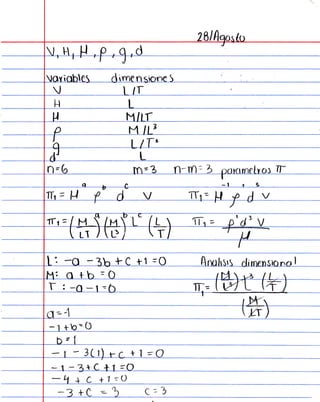 28/Agosto
V, H, μ, ρ, g, d
variables dimensiones
V L/T
H L
μ M/LT
ρ M/L³
g L/T²
d L
n=6 m=3 n-m=3 parametros π
π₁ = μ^a ρ^b d^c V π₁ = μ^-1 ρ d^3 V
π₁ = (M/LT)^a (M/L³)^b L^c (L/T) π₁ = ρ¹d³V/μ
L: -a -3b + c +1 =0 Analisis dimensional
M: a + b =0 π₁ = (M/L³) L³ (L/T) / (M/LT)
T: -a -1 =0
a = -1
-1 + b = 0
b = 1
-1 - 3(1) + c + 1 = 0
-1 - 3 + c + 1 = 0
-4 + c + 1 = 0
-3 + c = 3 c = 3